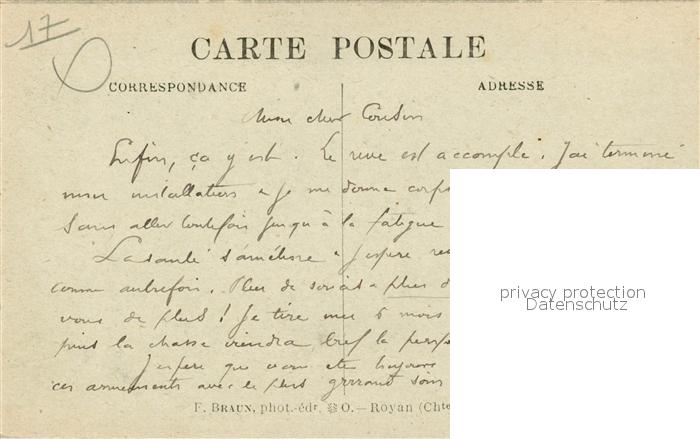 17
CARTE POSTALE
CORRESPONDANCE
ADRESSE
Mon cher Cousin
Enfin, ça y est. Le reve est accompli. J'ai terminé
mon installation & je me donne corps
sans aller toutefois jusqu'à la fatigue
La santé s'améliore & j'espère
comme autrefois. Plus de soucis & plus
vous de plus! Je tire mes 6 mois
puis la chasse viendra, bref la
J'espere que vous êtes toujours
ces armements avec le plus grrrand soin
privacy protection
Datenschutz
F. BRAUN, phot.-édr, O. — Royan (Chte